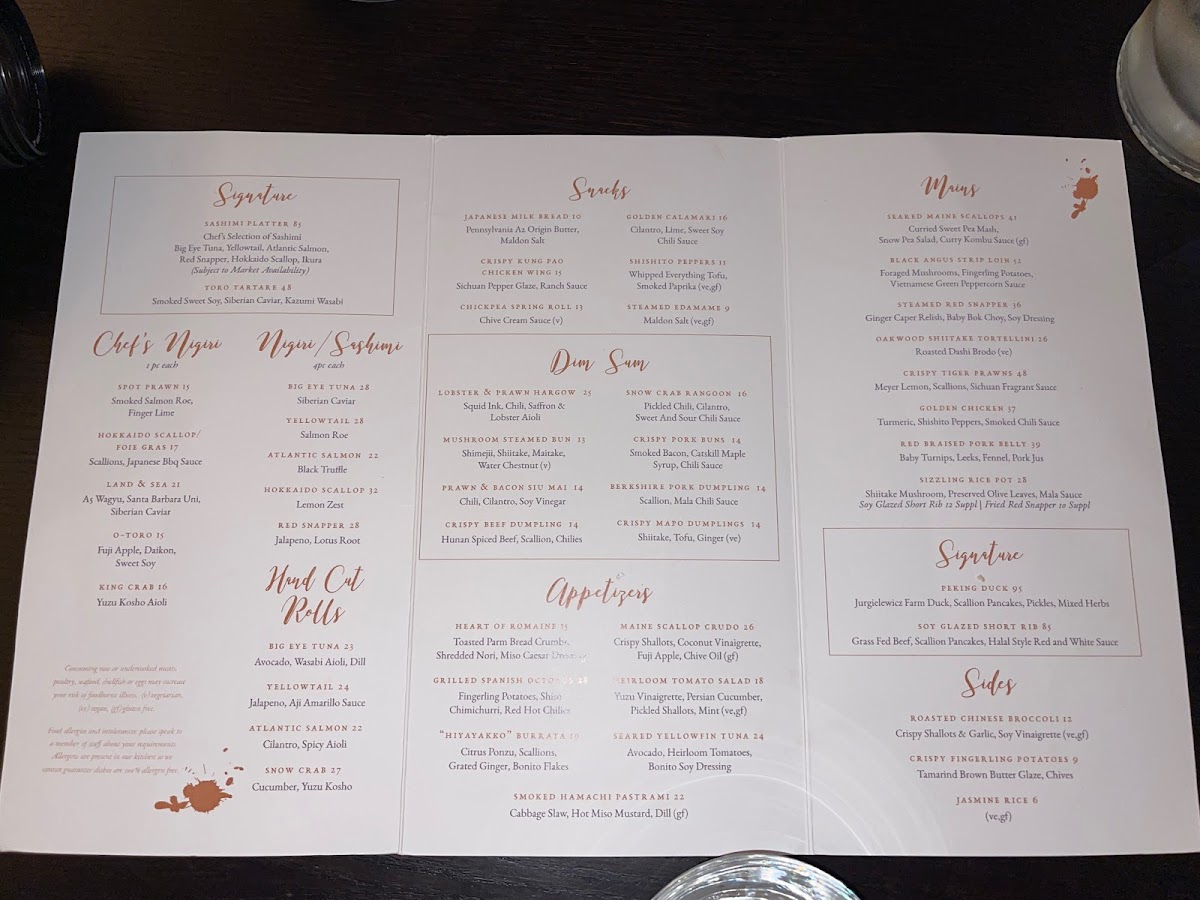 Signature
SASHIMI PLATTER 85
Chef's Selection of Sashimi
Big Eye Tuna, Yellowtail, Atlantic Salmon,
Red Snapper, Hokkaido Scallop, Ikura
(Subject to Market Availability)
TORO TARTARE 48
Smoked Sweet Soy, Siberian Caviar, Kazumi Wasabi
Chef's Nigiri
1 pc each
SPOT PRAWN 15
Smoked Salmon Roe,
Finger Lime
HOKKAIDO SCALLOP/
FOIE GRAS 17
Scallions, Japanese Bbq Sauce
LAND & SEA 21
A5 Wagyu, Santa Barbara Uni,
Siberian Caviar
O-TORO 15
Fuji Apple, Daikon,
Sweet Soy
KING CRAB 16
Yuzu Kosho Aioli
Consuming raw or undercooked meats,
poultry, seafood, shellfish or eggs may increase
your risk of foodborne illness. (v) vegetarian,
(ve) vegan, (gf) gluten free.
Food allergies and intolerances: please speak to
a member of staff about your requirements.
Allergens are present in our kitchen so we
cannot guarantee dishes are 100% allergen free.
Nigiri/Sashimi
4pc each
BIG EYE TUNA 28
Siberian Caviar
YELLOWTAIL 28
Salmon Roe
ATLANTIC SALMON 22
Black Truffle
HOKKAIDO SCALLOP 32
Lemon Zest
RED SNAPPER 28
Jalapeno, Lotus Root
Hand Cut
Rolls
BIG EYE TUNA 23
Avocado, Wasabi Aioli, Dill
YELLOWTAIL 24
Jalapeno, Aji Amarillo Sauce
ATLANTIC SALMON 22
Cilantro, Spicy Aioli
SNOW CRAB 27
Cucumber, Yuzu Kosho
Snacks
JAPANESE MILK BREAD 10
Pennsylvania A2 Origin Butter,
Maldon Salt
CRISPY KUNG PAO
CHICKEN WING 15
Sichuan Pepper Glaze, Ranch Sauce
CHICKPEA SPRING ROLL 13
Chive Cream Sauce (v)
GOLDEN CALAMARI 16
Cilantro, Lime, Sweet Soy
Chili Sauce
SHISHITO PEPPERS 11
Whipped Everything Tofu,
Smoked Paprika (ve,gf)
STEAMED EDAMAME 9
Maldon Salt (ve,gf)
Dim Sum
LOBSTER & PRAWN HARGOW 25
Squid Ink, Chili, Saffron &
Lobster Aioli
MUSHROOM STEAMED BUN 13
Shimejii, Shiitake, Maitake,
Water Chestnut (v)
PRAWN & BACON SIU MAI 14
Chili, Cilantro, Soy Vinegar
CRISPY BEEF DUMPLING 14
Hunan Spiced Beef, Scallion, Chilies
SNOW CRAB RANGOON 16
Pickled Chili, Cilantro,
Sweet And Sour Chili Sauce
CRISPY PORK BUNS 14
Smoked Bacon, Catskill Maple
Syrup, Chili Sauce
BERKSHIRE PORK DUMPLING 14
Scallion, Mala Chili Sauce
CRISPY MAPO DUMPLINGS 14
Shiitake, Tofu, Ginger (ve)
Appetizers
HEART OF ROMAINE 15
Toasted Parm Bread Crumbs,
Shredded Nori, Miso Caesar Dressing
GRILLED SPANISH OCTOPUS 28
Fingerling Potatoes, Shiso
Chimichurri, Red Hot Chilies
"HIYAYAKKO" BURRATA 19
Citrus Ponzu, Scallions,
Grated Ginger, Bonito Flakes
MAINE SCALLOP CRUDO 26
Crispy Shallots, Coconut Vinaigrette,
Fuji Apple, Chive Oil (gf)
HEIRLOOM TOMATO SALAD 18
Yuzu Vinaigrette, Persian Cucumber,
Pickled Shallots, Mint (ve,gf)
SEARED YELLOWFIN TUNA 24
Avocado, Heirloom Tomatoes,
Bonito Soy Dressing
SMOKED HAMACHI PASTRAMI 22
Cabbage Slaw, Hot Miso Mustard, Dill (gf)
Mains
SEARED MAINE SCALLOPS 41
Curried Sweet Pea Mash,
Snow Pea Salad, Curry Kombu Sauce (gf)
BLACK ANGUS STRIP LOIN 52
Foraged Mushrooms, Fingerling Potatoes,
Vietnamese Green Peppercorn Sauce
STEAMED RED SNAPPER 36
Ginger Caper Relish, Baby Bok Choy, Soy Dressing
OAKWOOD SHIITAKE TORTELLINI 26
Roasted Dashi Brodo (ve)
CRISPY TIGER PRAWNS 48
Meyer Lemon, Scallions, Sichuan Fragrant Sauce
GOLDEN CHICKEN 37
Turmeric, Shishito Peppers, Smoked Chili Sauce
RED BRAISED PORK BELLY 39
Baby Turnips, Leeks, Fennel, Pork Jus
SIZZLING RICE POT 28
Shiitake Mushroom, Preserved Olive Leaves, Mala Sauce
Soy Glazed Short Rib 12 Suppl | Fried Red Snapper 10 Suppl
Signature
PEKING DUCK 95
Jurgielewicz Farm Duck, Scallion Pancakes, Pickles, Mixed Herbs
SOY GLAZED SHORT RIB 85
Grass Fed Beef, Scallion Pancakes, Halal Style Red and White Sauce
Sides
ROASTED CHINESE BROCCOLI 12
Crispy Shallots & Garlic, Soy Vinaigrette (ve,gf)
CRISPY FINGERLING POTATOES 9
Tamarind Brown Butter Glaze, Chives
JASMINE RICE 6
(ve,gf)